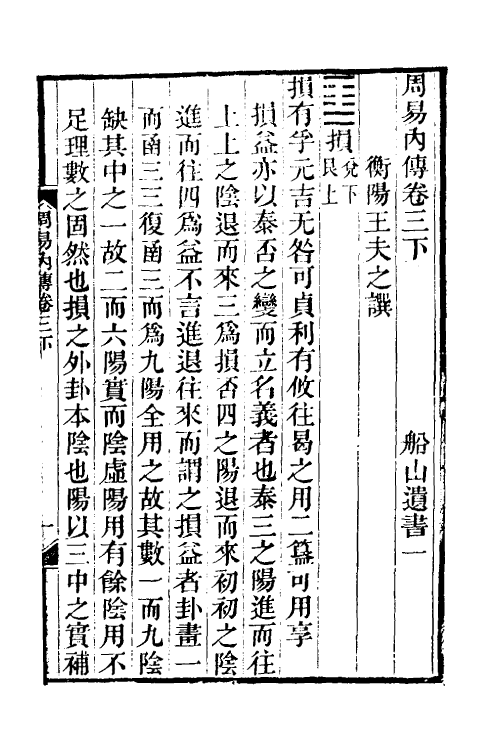 周易內傳卷三下　船山遺書一
衡陽王夫之譔
䷨損兌下艮上
損有孚元吉无咎可貞利有攸往曷之用二簋可用享
損益亦以泰否之變而立名義者也泰三之陽進而往
上上之陰退而來三為損否四之陽退而來初初之陰
進而往四為益不言進退往來而謂之損益者卦畫一
而函三三復函三而為九陽全用之故其數一而九陰
缺其中之一故二而六陽實而陰虛陽用有餘陰用不
足理數之固然也損之外卦本陰也陽以三中之實補
周易內傳卷三下　一